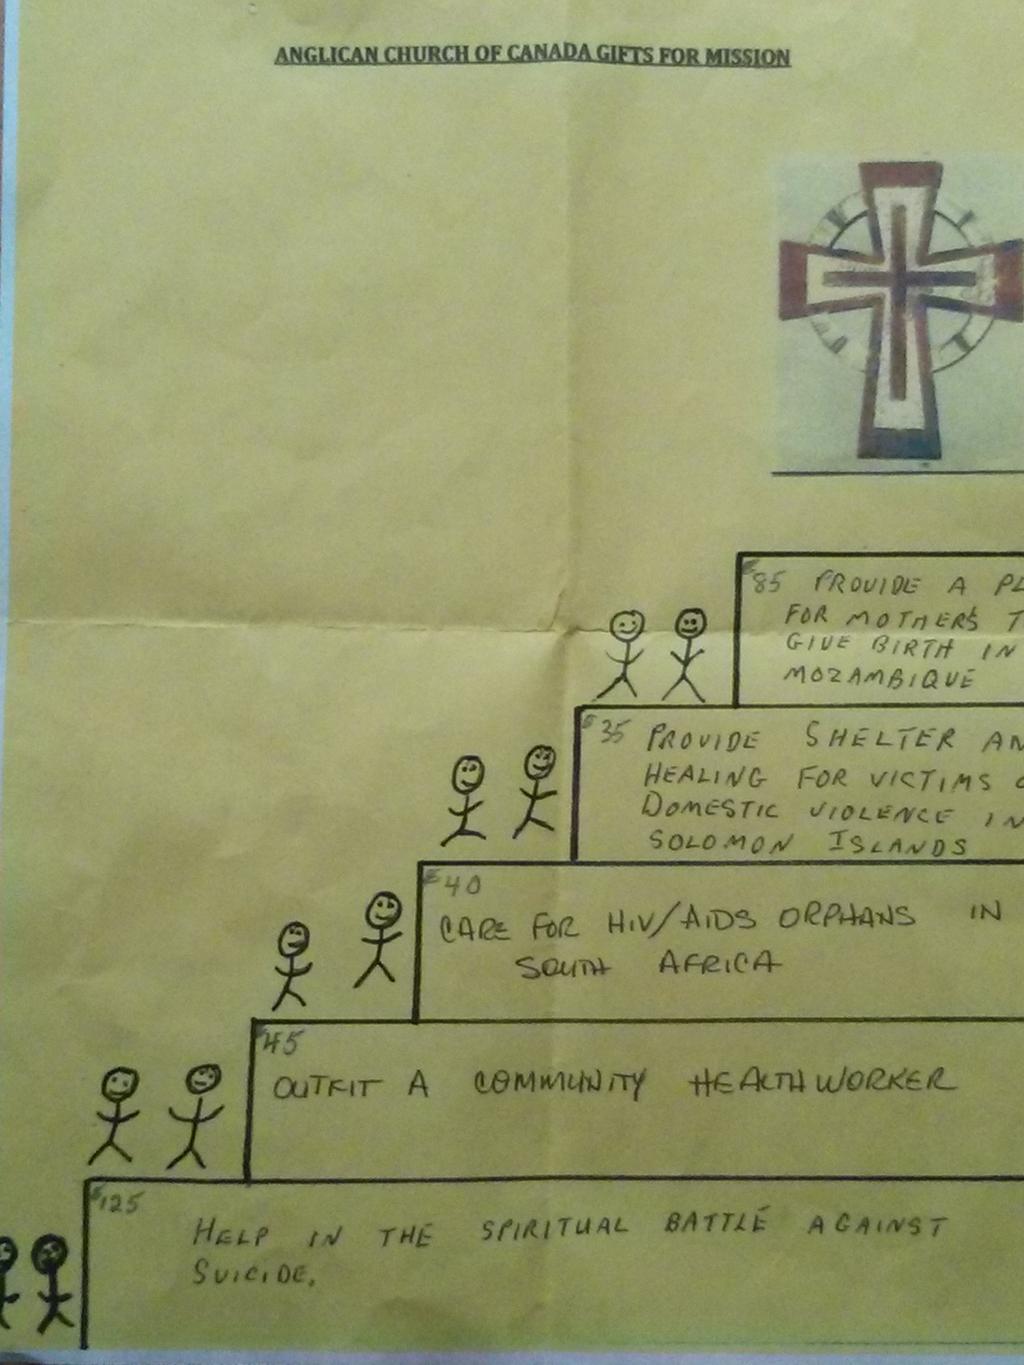 ANGLICAN CHURCH OF CANADA GIFTS FOR MISSION
$85 PROVIDE A
FOR MOTHERS
GIVE BIRTH IN
MOZAMBIQUE
$35 PROVIDE SHELTER
HEALING FOR VICTIMS
DOMESTIC VIOLENCE IN
SOLOMON ISLANDS
$40
CARE FOR HIV/AIDS ORPHANS IN
SOUTH AFRICA
$45
OUTFIT A COMMUNITY HEALTH WORKER
$125
HELP IN THE SPIRITUAL BATTLE AGAINST
SUICIDE.